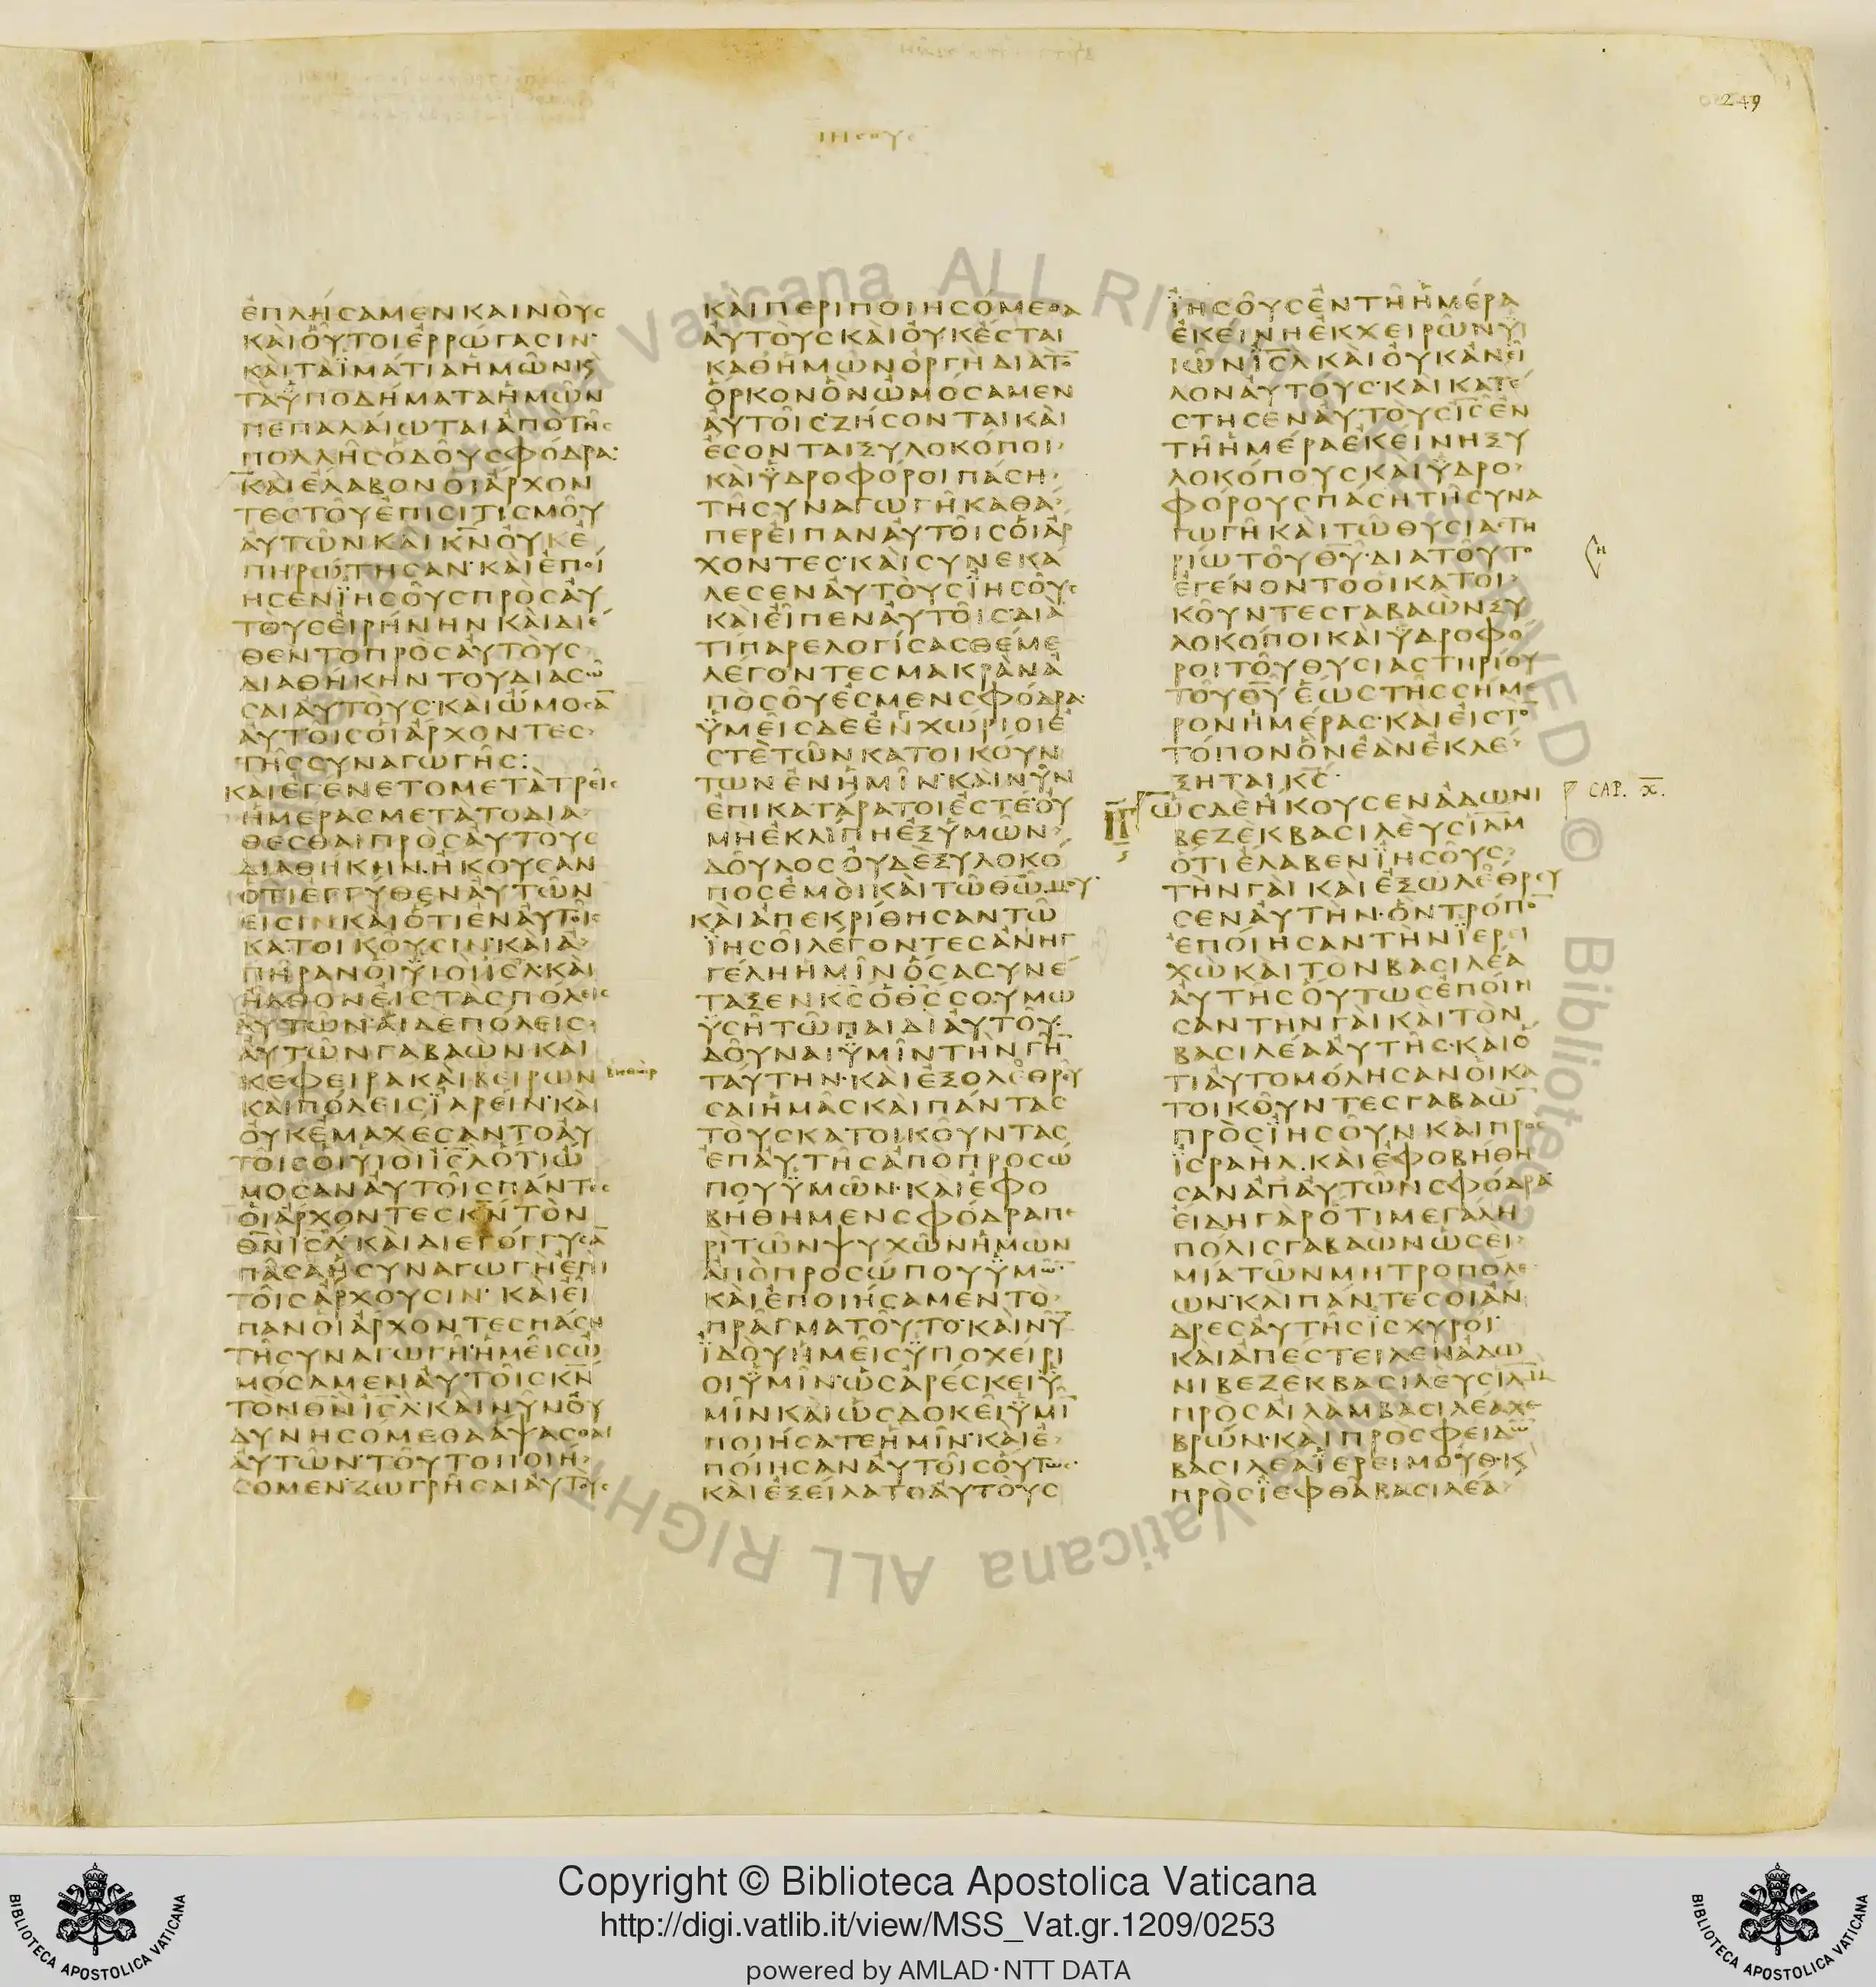 249
ΙΗΣΟΥΣ
ἐπλήσαμεν καινοὺς
καὶ οὗτοι ἐρρώγασιν·
καὶ τὰ ἱμάτια ἡμῶν κ̀
τὰ ὑποδήματα ἡμῶν
πεπαλαίωται ἀπὸ τῆς
πολλῆς ὁδοῦ σφόδρα·
καὶ ἔλαβον οἱ ἄρχον
τες τοῦ ἐπισιτισμοῦ
αὐτῶν καὶ κν̄ οὐκ ἐ
πηρώτησαν· καὶ ἐποί
ησεν ἰησοῦς πρὸς αὐ
τοὺς εἰρήνην καὶ διέ
θεντο πρὸς αὐτοὺς
διαθήκην τοῦ διασῶ
σαι αὐτούς· καὶ ὤμοσᾱ
αὐτοῖς οἱ ἄρχοντες
τῆς συναγωγῆς:
καὶ ἐγένετο μετὰ τρεῖς
ἡμέρας μετὰ τὸ δια
θέσθαι πρὸς αὐτοὺς
διαθήκην. ἤκουσαν
ὅτι ἐγγύθεν αὐτῶν
εἰσιν καὶ ὅτι ἐν αὐτοῖς
κατοικοῦσιν· καὶ ἀ
πῆραν οἱ υἱοὶ ῑσ̄λ̄ καὶ
ἦλθον εἰς τὰς πόλεις
αὐτῶν· αἱ δὲ πόλεις
αὐτῶν γαβαὼν· καὶ
κεφειρα καὶ βειρων
καὶ πόλεις ἰαρείν· καὶ
οὐκ ἐμαχέσαντο αὐ
τοῖς οἱ υἱοὶ ῑσ̄λ̄ ὅτι ὤ
μοσαν αὐτοῖς πάντες
οἱ ἄρχοντες κν̄ τὸν
θν̄ ῑσ̄λ̄· καὶ διεγόγγυσᾱ
πᾶσα ἡ συναγωγὴ ἐπὶ
τοῖς ἄρχουσιν· καὶ εἶ
παν οἱ ἄρχοντες πάσῃ
τῇ συναγωγῇ· ἡμεῖς ὠ
μόσαμεν αὐτοῖς κν̄
τὸν θν̄ ῑσ̄λ̄· καὶ νῦν οὐ
δυνησόμεθα ἅψασθαι
αὐτῶν· τοῦτο ποιή
σομεν· ζωγρῆσαι αὐτούς
καὶ περιποιησόμεθα
αὐτοὺς καὶ οὐκ ἔσται
καθ ἡμῶν ὀργὴ διὰ τὸ
ὅρκον ὃν ὠμόσαμεν
αὐτοῖς· ζήσονται καὶ
ἔσονται ξυλοκόποι
καὶ ὑδροφόροι πάσῃ
τῇ συναγωγῇ καθά
περ εἶπαν αὐτοῖς οἱ ἄρ
χοντες· καὶ συνεκά
λεσεν αὐτοὺς ἰησοῦς
καὶ εἶπεν αὐτοῖς· διὰ
τί παρελογίσασθέ με
λέγοντες μακρὰν ἀ
πὸ σοῦ ἐσμεν σφόδρα·
ὑμεῖς δὲ ἐνχώριοί ἐ
στε τῶν κατοικούν
των ἐν ἡμῖν· καὶ νῦν
ἐπικατάρατοί ἐστε· οὐ
μὴ ἐκλίπῃ ἐξ ὑμῶν
δοῦλος οὐδὲ ξυλοκό
πος ἐμοὶ καὶ τῷ θῶ̄ μου·
καὶ ἀπεκρίθησαν τῷ
ἰησοῖ λέγοντες ἀνηγ
γέλη ἡμῖν ὅσα συνέ
ταξεν κς̄ ὁ θς̄ σου μω
υσῇ τῷ παιδὶ αὐτοῦ
δοῦναι ὑμῖν τὴν γῆν
ταύτην· καὶ ἐξολεθρεῦ
σαι ἡμᾶς καὶ πάντας
τοὺς κατοικοῦντας
ἐπ αὐτῆς ἀπὸ προσώ
που ὑμῶν· καὶ ἐφο
βήθημεν σφόδρα πε
ρὶ τῶν ψυχῶν ἡμῶν
ἀπὸ προσώπου ὑμῶν·
καὶ ἐποιήσαμεν τὸ
πρᾶγμα τοῦτο· καὶ νῦν
ἰδοὺ ἡμεῖς ὑποχείρι
οι ὑμῖν· ὡς ἀρέσκει ὑ
μῖν καὶ ὡς δοκεῖ ὑμῖ̄
ποιήσατε ἡμῖν· καὶ ἐ
ποίησαν αὐτοῖς οὕτως·
καὶ ἐξείλατο αὐτοὺς
ἰησοῦς ἐν τῇ ἡμέρᾳ
ἐκείνῃ ἐκ χειρῶν υἱ
ῶν ῑσ̄λ̄ καὶ οὐκ ἀνεῖ
λον αὐτούς· καὶ κατέ
στησεν αὐτοὺς ῑς̄ ἐν
τῇ ἡμέρᾳ ἐκείνῃ ξυ
λοκόπους καὶ ὑδρο
φόρους πάσῃ τῇ συνα
γωγῇ καὶ τῷ θυσιαστη
ρίῳ τοῦ θῡ· διὰ τοῦτο
ἐγένοντο οἱ κατοι
κοῦντες γαβαὼν ξυ
λοκόποι καὶ ὑδροφό
ροι τοῦ θυσιαστηρίου
τοῦ θῡ ἕως τῆς σήμε
ρον ἡμέρας· καὶ εἰς τὸ̄
τόπον ὃν ἐὰν ἐκλέ
ξηται κς̄·
ὡς δὲ ἤκουσεν ἀδωνι
βεζὲκ βασιλεὺς ῑλ̄μ̄
ὅτι ἔλαβεν ἰησοῦς
τὴν γαὶ καὶ ἐξωλέθρευ
σεν αὐτήν· ὃν τρόπο̄
ἐποίησαν τὴν ἰερει
χὼ καὶ τὸν βασιλέα
αὐτῆς οὕτως ἐποίη
σαν τὴν γαὶ καὶ τὸν
βασιλέα αὐτῆς· καὶ ὅ
τι αὐτομόλησαν οἱ κα
τοικοῦντες γαβαὼ̄
πρὸς ἰησοῦν καὶ πρὸς
ἰσραήλ. καὶ ἐφοβήθη
σαν ἀπ αὐτῶν σφόδρα·
εἴδη γὰρ ὅτι μεγάλη
πόλις γαβαὼν ὡσεὶ
μία τῶν μητροπόλε
ων· καὶ πάντες οἱ ἄν
δρες αὐτῆς ἰσχυροί·
καὶ ἀπέστειλεν ἀδω
νιβεζὲκ βασιλεὺς ῑλ̄η̄μ̄
πρὸς αἰλὰμ βασιλέα χε
βρών· καὶ πρὸς φειδὼ̄
βασιλέα ἱερειμούθ· κ̀
πρὸς ἰεφθὰ βασιλέα
CAP. X.
Copyright © Biblioteca Apostolica Vaticana
http://digi.vatlib.it/view/MSS_Vat.gr.1209/0253
powered by AMLAD·NTT DATA
BIBLIOTECA APOSTOLICA VATICANA
BIBLIOTECA APOSTOLICA VATICANA